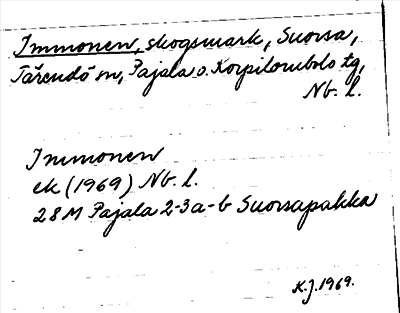 Immonen, skogsmark, Suorsa,
Tärendö sn, Pajala o. Korpilombolo tg,
Nb. l.
Immonen
ek (1969) Nb. l.
28M Pajala 2-3a-b Suorsapakka
K.J. 1969.